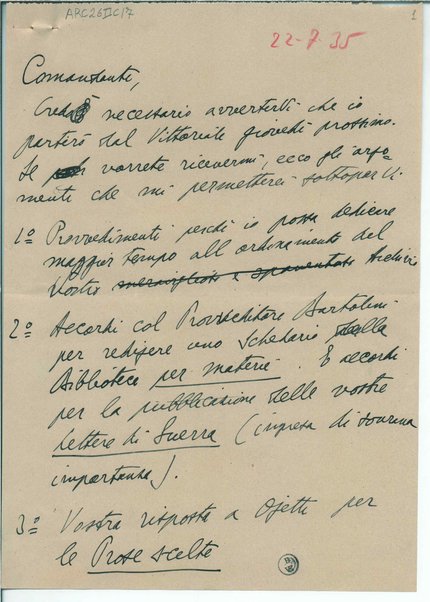 ARC26IIC/7
1
22-7-35
Comandante,
Credo necessario avvertirvi che io
partirò dal Vittoriale giovedì prossimo.
Se vorrete ricevermi, ecco gli argo-
menti che mi permetterei sottoporvi.
1° Provvedimenti perché io possa dedicare
maggior tempo all'ordinamento del
Vostro meraviglioso e spaventoso Archivio
2° Accordi col Provveditore Bartolini
per redigere uno Schedario della
Biblioteca per materie. E accordi
per la pubblicazione delle vostre
Lettere di Guerra (impresa di somma
importanza).
3° Vostra risposta a Ojetti per
le Prose scelte